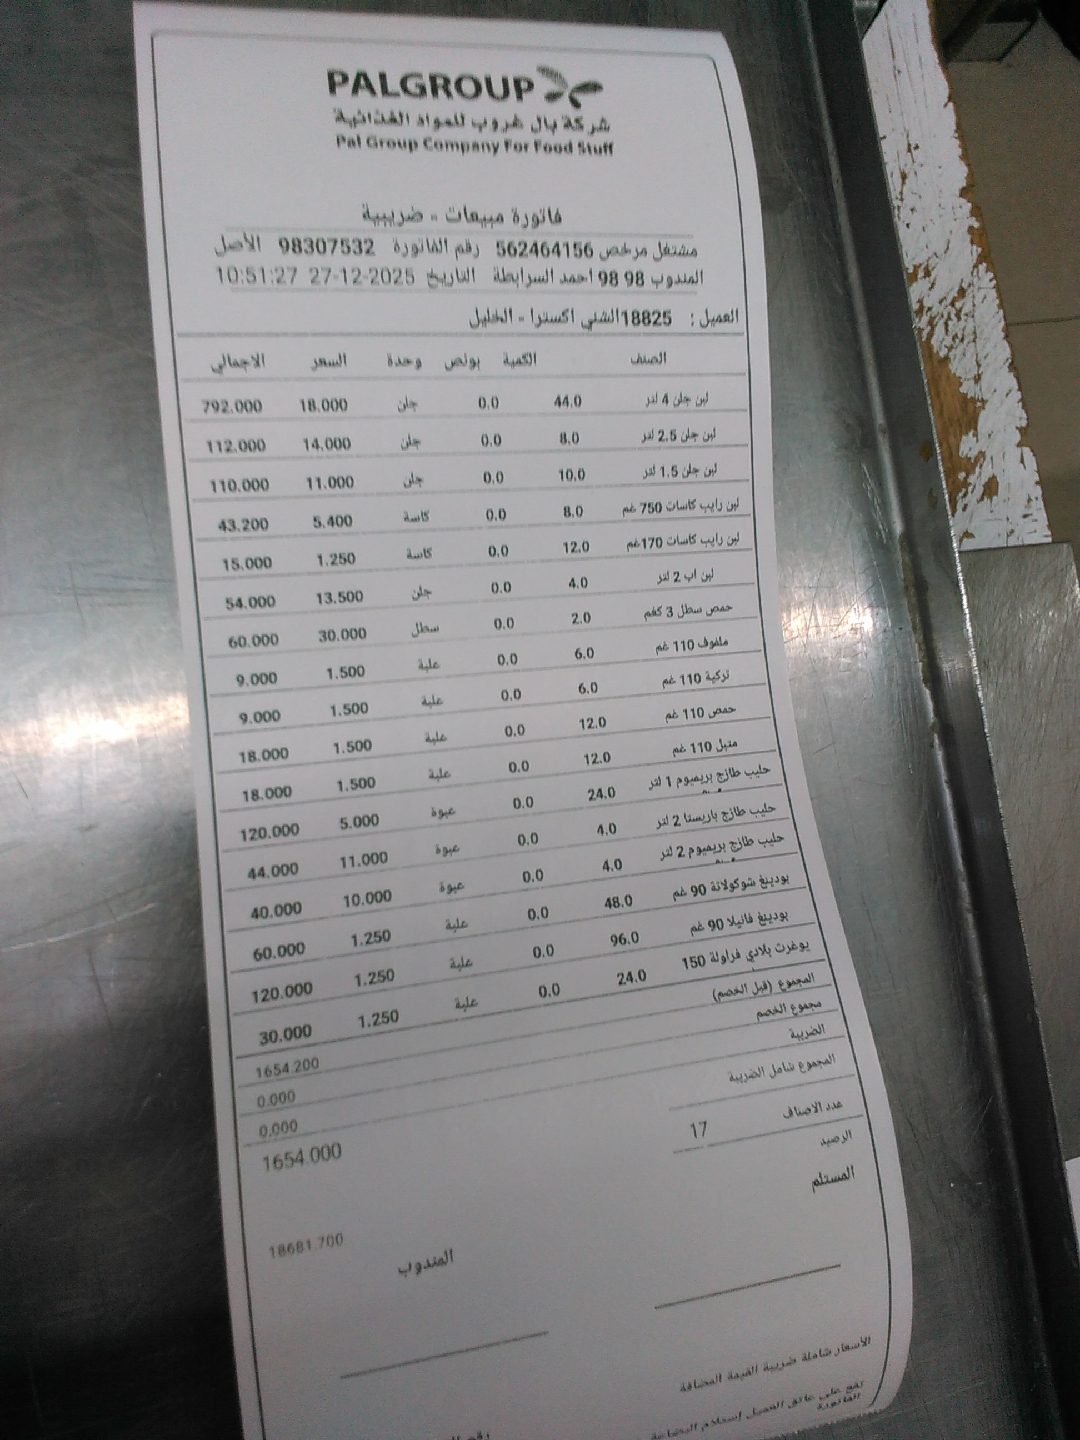 PALGROUP
شركة بال غروب للمواد الغذائية
Pal Group Company For Food Stuff
فاتورة مبيعات - ضريبية
مشتغل مرخص 562464156 رقم الفاتورة 98307532 الأصل
المندوب 98 98 احمد السرابطة التاريخ 27-12-2025 10:51:27
العميل : 18825الشني اكسترا - الخليل
الصنف الكمية بولص وحدة السعر الاجمالي
لبن جلن 4 لتر 44.0 0.0 جلن 18.000 792.000
لبن جلن 2.5 لتر 8.0 0.0 جلن 14.000 112.000
لبن جلن 1.5 لتر 10.0 0.0 جلن 11.000 110.000
لبن رايب كاسات 750 غم 8.0 0.0 كاسة 5.400 43.200
لبن رايب كاسات 170غم 12.0 0.0 كاسة 1.250 15.000
لبن اب 2 لتر 4.0 0.0 جلن 13.500 54.000
حمص سطل 3 كغم 2.0 0.0 سطل 30.000 60.000
ملفوف 110 غم 6.0 0.0 علبة 1.500 9.000
تركية 110 غم 6.0 0.0 علبة 1.500 9.000
حمص 110 غم 12.0 0.0 علبة 1.500 18.000
متبل 110 غم 12.0 0.0 علبة 1.500 18.000
حليب طازج بريميوم 1 لتر 24.0 0.0 عبوة 5.000 120.000
حليب طازج باريستا 2 لتر 4.0 0.0 عبوة 11.000 44.000
حليب طازج بريميوم 2 لتر 4.0 0.0 عبوة 10.000 40.000
بودينغ شوكولاتة 90 غم 48.0 0.0 علبة 1.250 60.000
بودينغ فانيلا 90 غم 96.0 0.0 علبة 1.250 120.000
يوغرت بلادي فراولة 150 24.0 0.0 علبة 1.250 30.000
المجموع (قبل الخصم) 1654.200
مجموع الخصم 0.000
الضريبة 0.000
المجموع شامل الضريبة 1654.000
عدد الاصناف 17
الرصيد 18681.700
المستلم المندوب
الأسعار شاملة ضريبة القيمة المضافة
تقع على عاتق العميل إستلام البضاعة
الفاتورة